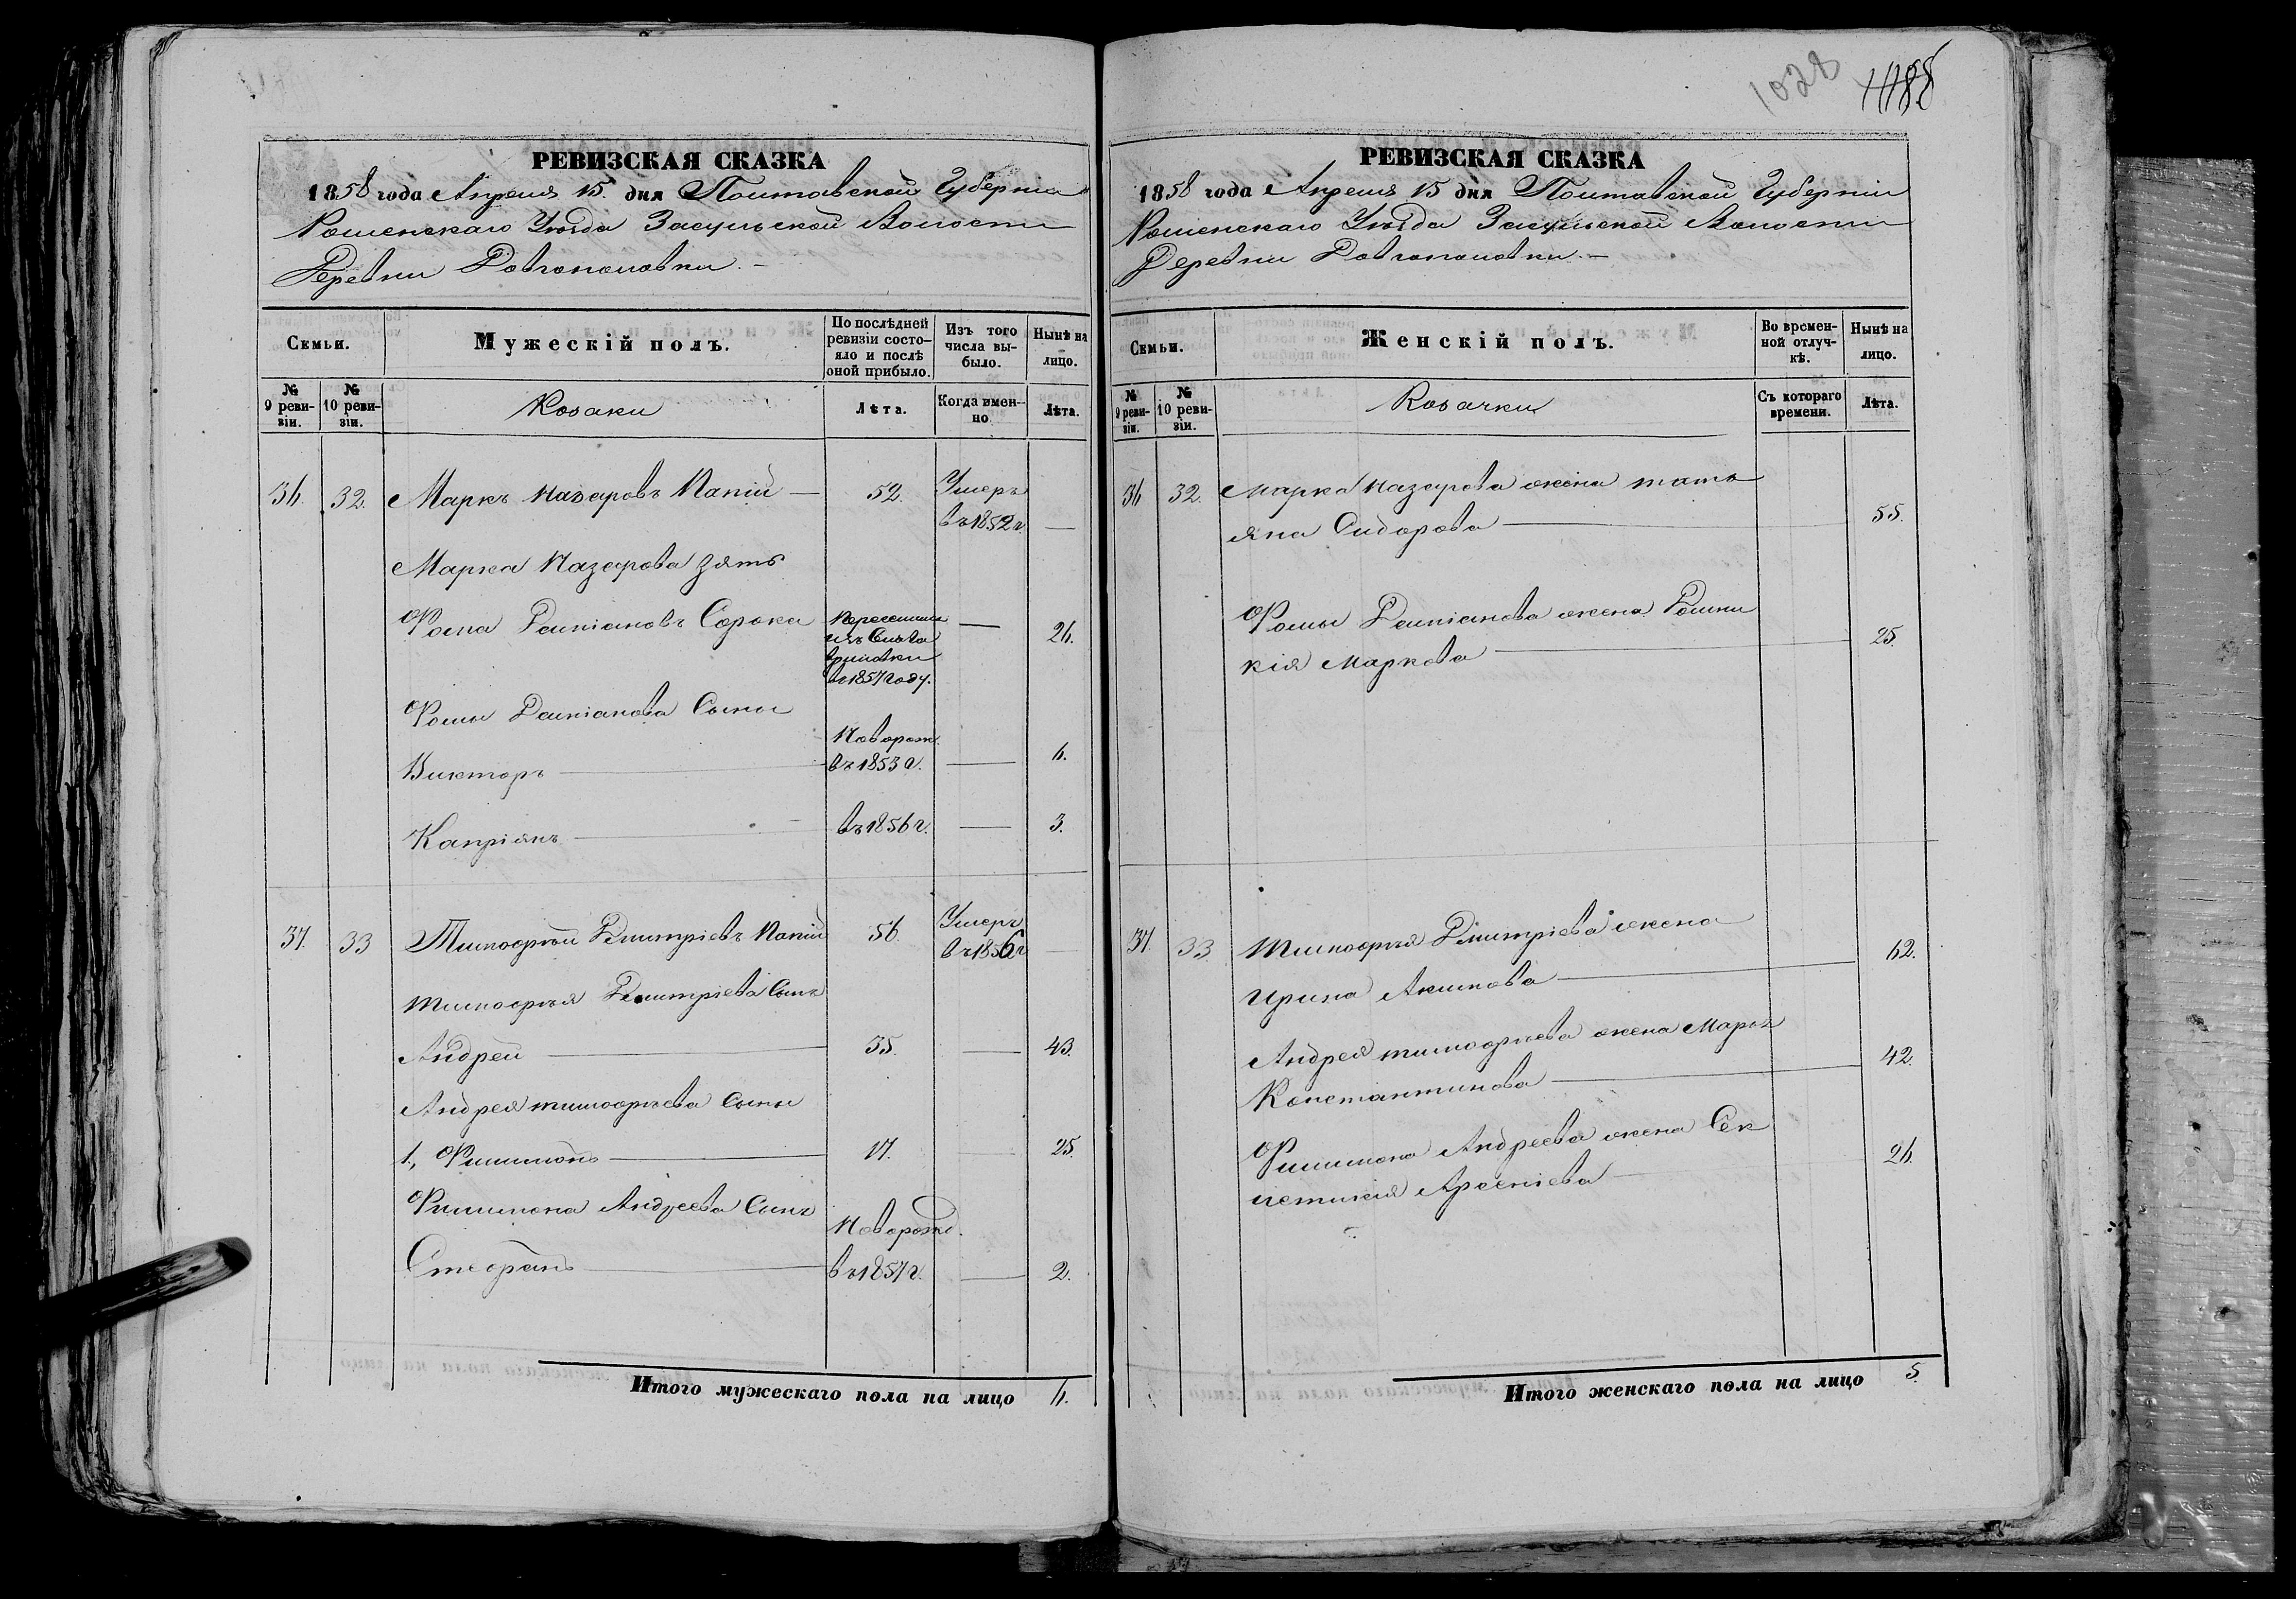 1028
1188
РЕВИЗСКАЯ СКАЗКА
1858 года Апреля 15. дня Полтавской Губерніи
Роменскаго Уѣзда Засульской Волости
Деревни Довгополовки. —
Семьи.
Мужескій полъ.
По послѣдней ревизіи состо-
яло и послѣ
оной прибыло.
Изъ того
числа вы-
было.
Нынѣ на
лицо.
№
9 реви-
зіи.
№
10 реви-
зіи.
Козаки
Лѣта.
Когда имен-
но
Лѣта.
36. 32. Маркъ Назаровъ Папій — 52. Умеръ
въ 1852 г. —
Марка Назарова зять
Фома Даміановъ Сорока
въ 1857 году. — 26.
Фомы Даміанова Сыны
Викторъ — Новорож.
въ 1853 г. — 6.
Капріянъ — въ 1856 г. — 3.
37. 33 Тимофѣй Дмитріевъ Папій 56. Умеръ
въ 1856 г —
Тимофѣя Дмитріева Сынъ
Андрей — 35. — 43.
Андрея Тимофѣева Сыны
1., Филимонъ — 17. — 25.
Филимона Андреева Сынъ
Стефанъ — Новорожд.
въ 1857 г. — 2.
Итого мужескаго пола на лицо 6.
РЕВИЗСКАЯ СКАЗКА
1858 года Апреля 15 дня Полтавской Губерніи
Роменскаго Уѣзда Засульской Волости
Деревни Довгополовки. —
Семьи.
Женскій полъ.
Во времен-
ной отлуч-
кѣ.
Нынѣ на
лицо.
№
9 реви-
зіи.
№
10 реви-
зіи.
Козачки
Съ котораго
времени.
Лѣта.
36 32. Марка Назарова жена Тать
яна Сидорова — 55.
Фомы Даміанова жена Домни
кія Маркова — 25.
37. 33. Тимофѣя Дмитріева жена
Ирина Акимова — 62.
Андрея Тимофѣева жена Марѳа
Константинова — 42.
Филимона Андреева жена Сек
летикія Арсеніева — 26.
Итого женскаго пола на лицо 5.